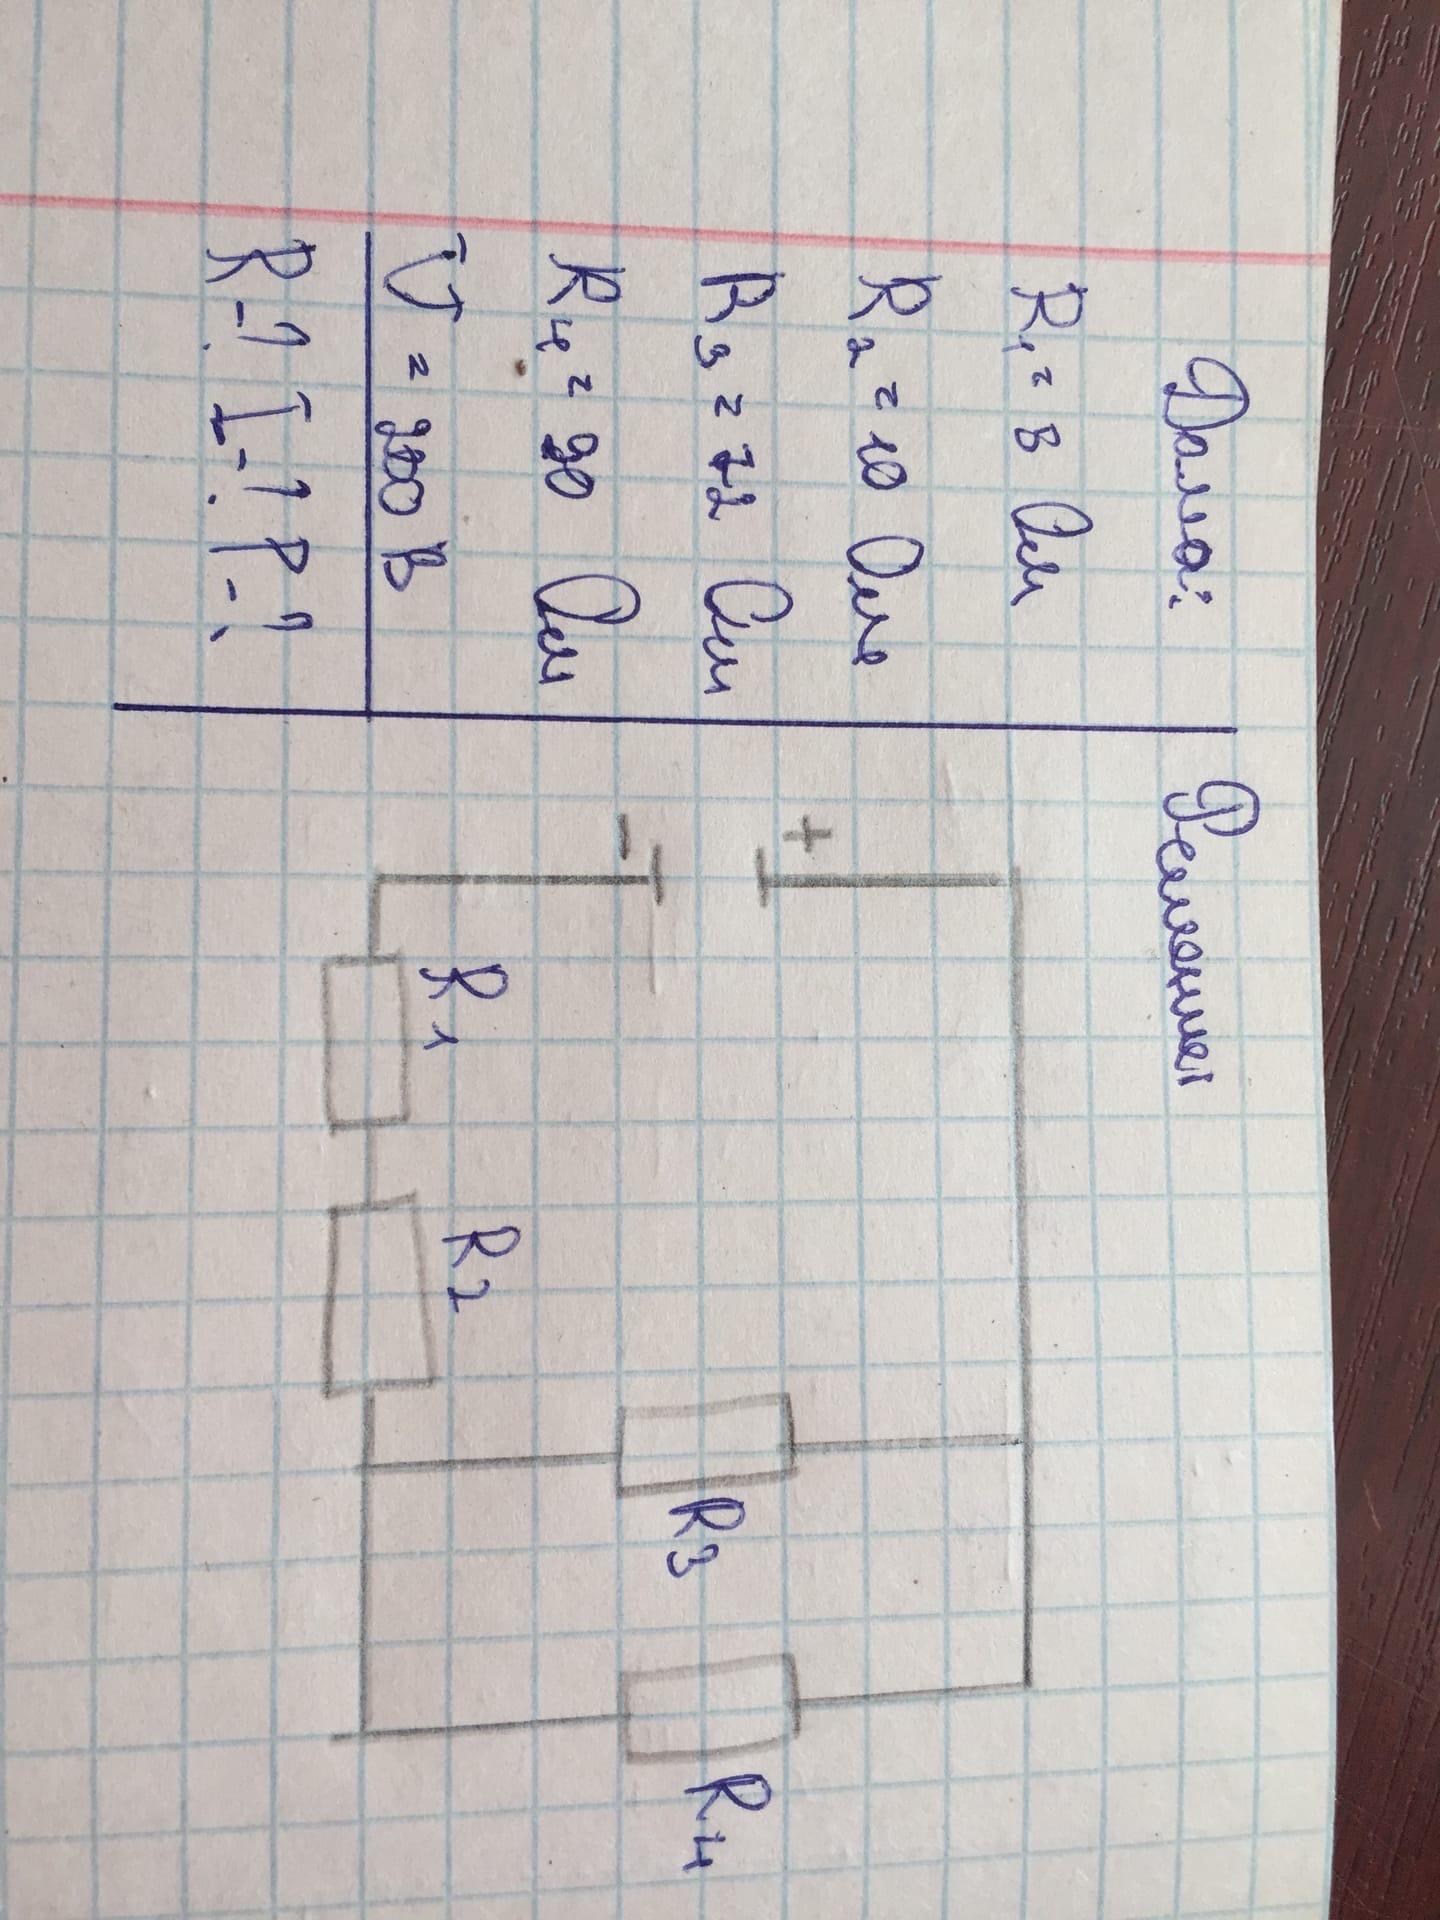 Дано:
R1 = 8 Ом
R2 = 10 Ом
R3 = 72 Ом
R4 = 90 Ом
U = 200 В
R-? I-? P-?
Решение
+
-
R1
R2
R3
R4